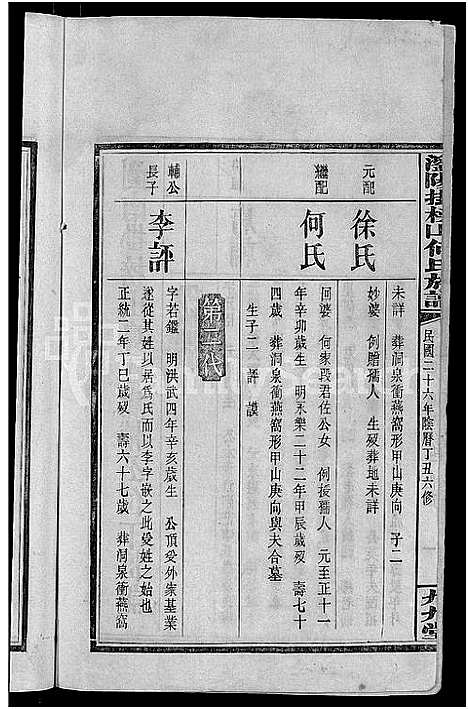 民國二十六年陰曆丁丑六修
一
未詳 葬洞泉衝燕窩形甲山庚向 子二
元配 徐氏 妙婆 例贈孺人 生歿葬地未詳
繼配 何氏 回婆 何家段君佐公女 例援孺人 元至正十一
年辛卯歲生 明永樂二十二年甲辰歲歿 壽七十
四歲 葬洞泉衝燕窩形甲山庚向與夫合墓
生子二 評 謨
第二代
輔公長子 李評 字若鑑 明洪武四年辛亥歲生 公頂受外家基業
遂從其姓以居爲氏而以李字嵌之此受姓之始也
正統二年丁巳歲歿 壽六十七歲 葬洞泉衝燕窩